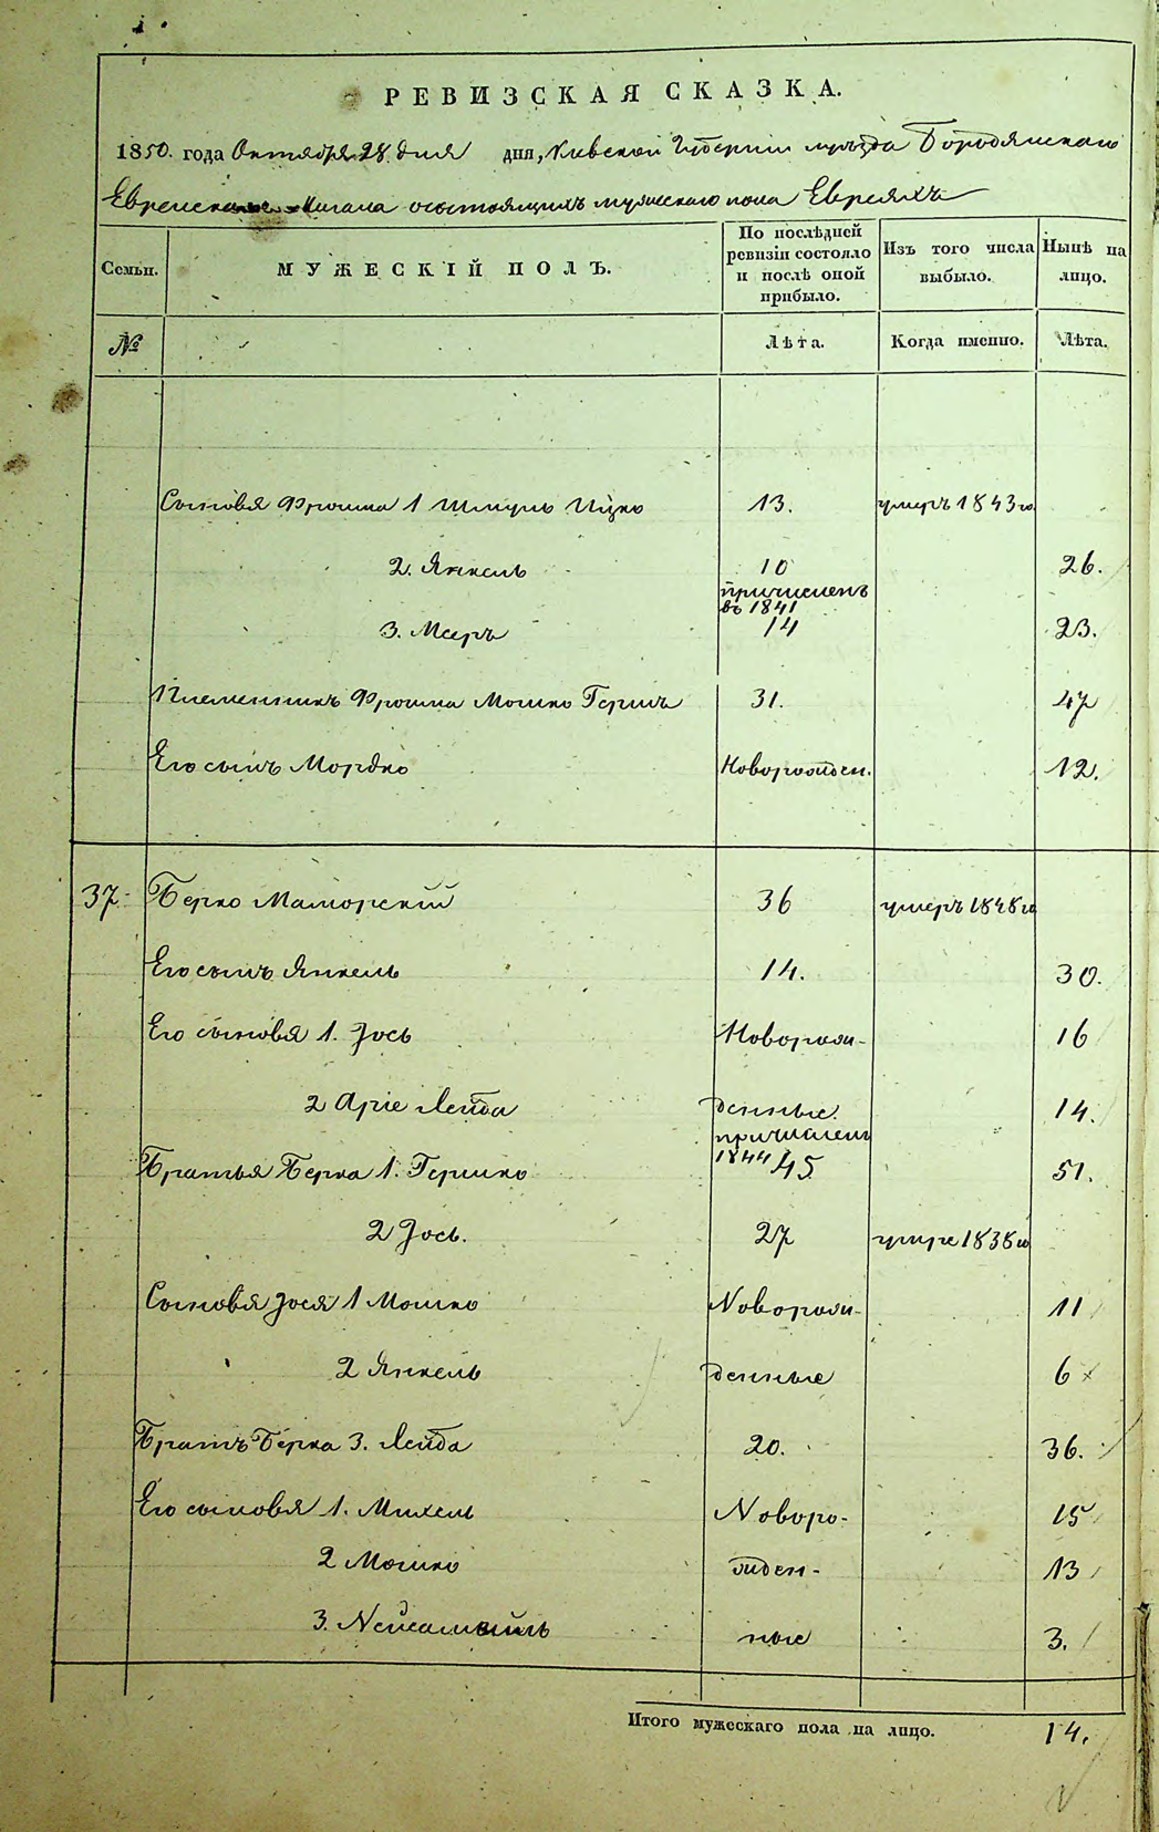 РЕВИЗСКАЯ СКАЗКА.
1850. года Октября 28 дня дня, Кіевской Губерніи уѣзда Бородянскаго
Еврейскаго Кагала о состоящихъ мужескаго пола Евреяхъ
Семьи. МУЖЕСКІЙ ПОЛЪ. По послѣдней ревизіи состояло и послѣ оной прибыло. Изъ того числа выбыло. Нынѣ на лицо.
№ Лѣта. Когда именно. Лѣта.
Сыновья Фроима 1 Шмуль Ицко 13. умеръ 1843го
2. Янкель 10 26.
причисленъ
въ 1841
3. Мееръ 14 23.
Племенникъ Фроима Мошко Гершъ 31. 47
Его сынъ Мордко Новорожден. 12.
37. Берко Маморскій 36 умеръ 1848го
Его сынъ Янкель 14. 30.
Его сыновья 1. Іось Новорож- 16
2 Аріе Лейба денные. 14.
причислен
Братья Берка 1. Гершко 1844 45 51.
2 Іось. 27 умре 1838го
Сыновья Іося 1 Мошко Новорож- 11
2 Янкель денные 6
Братъ Берка 3. Лейба 20. 36.
Его сыновья 1. Михель Новоро- 15
2 Мошко жден- 13
3. ные 3.
Итого мужескаго пола на лицо. 14.